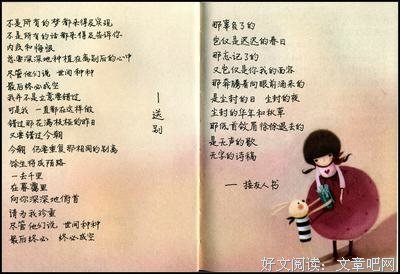 不是所有的梦都来得及实现
不是所有的话都来得及告诉你
内疚和悔恨
总要深深地种植在离别后的心中
尽管他们说 世间种种
最后终必成空
我并不是立意要错过
可是我 一直都在这样做
错过那花满枝桠的昨日
又要错过今朝
今朝 仍要重复那相同的别离
余生将成陌路
一去千里
在暮霭里
向你深深地俯首
请为我珍重
尽管他们说 世间种种
最后终必 终必成空
—送别
那辜负了的
也仅是迟迟的春日
那忘记了的
又也仅是你我的面容
那奔腾着向眼前涌来的
是尘封的日 尘封的夜
尘封的华年和秋草
那低首敛眉徐徐退去的
是无声的歌
无字的诗稿
—接友人书
好文阅读:文章吧网